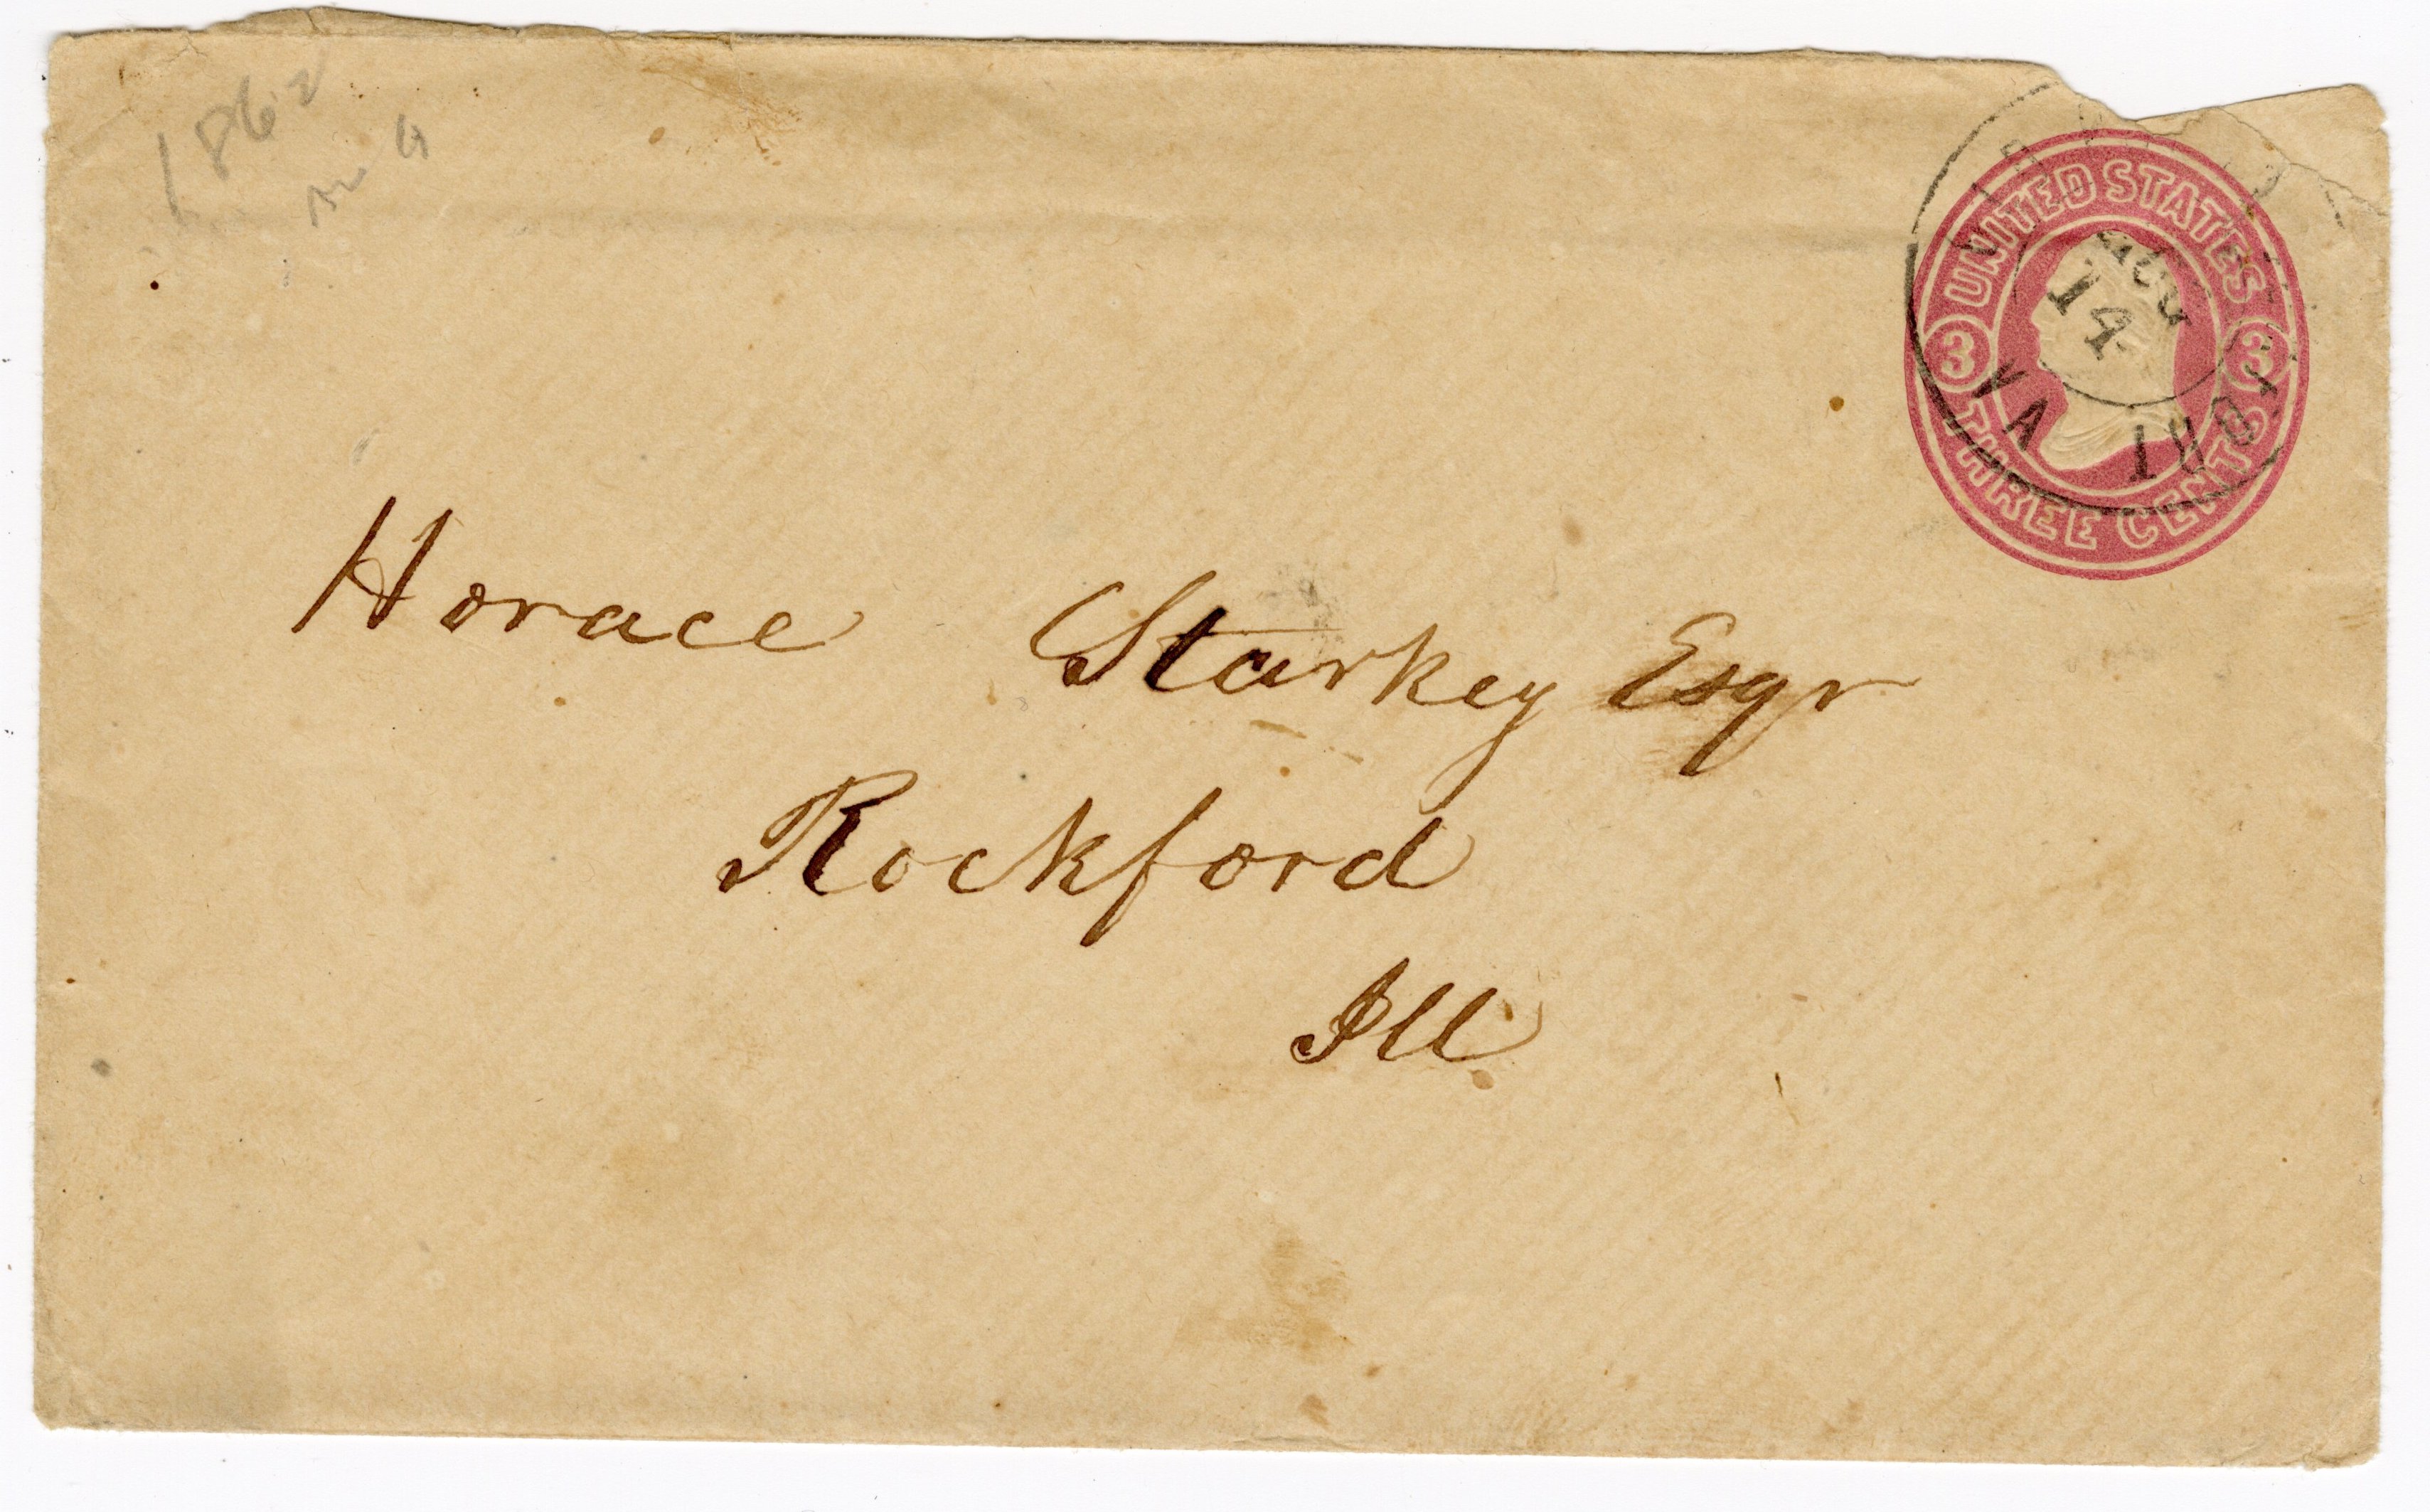 1862
UNITED STATES
3 3
THREE CENTS
AUG
14
VA
Horace Starkey Esqr
Rockford
Ill